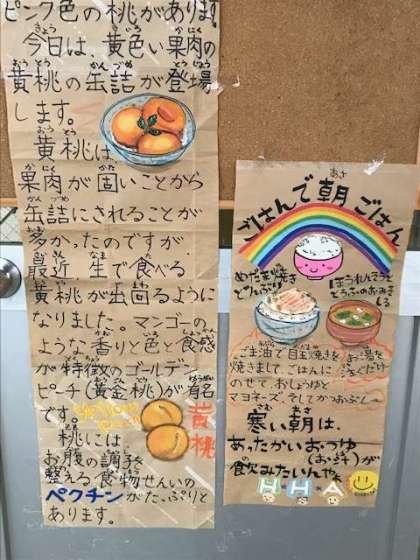 ピンク色の桃があります。
今日は、黄色い果肉の
黄桃の缶詰が登場
します。
黄桃は、
果肉が固いことから
缶詰にされることが
多かったのですが
最近、生で食べる
黄桃が出回るように
なりました。マンゴーの
ような香りと色と食感
が特徴のゴールデン
ピーチ(黄金桃)が有名
です。
黄桃
桃には
お腹の調子を
整える食物せんいの
ペクチンがたっぷりと
あります。
ごはんで朝ごはん
めだま焼き
どんぶり
ほうれんそうと
とうふのおみそ
しる
ごま油で目玉焼きを
焼きまして、ごはんに
のせて、おしょうゆと
マヨネーズ、そしてかつおぶし
お湯を
そそぐだけ
寒い朝は、
あったかいおつゆ
(お汁)が
飲みたいんや。
HHA